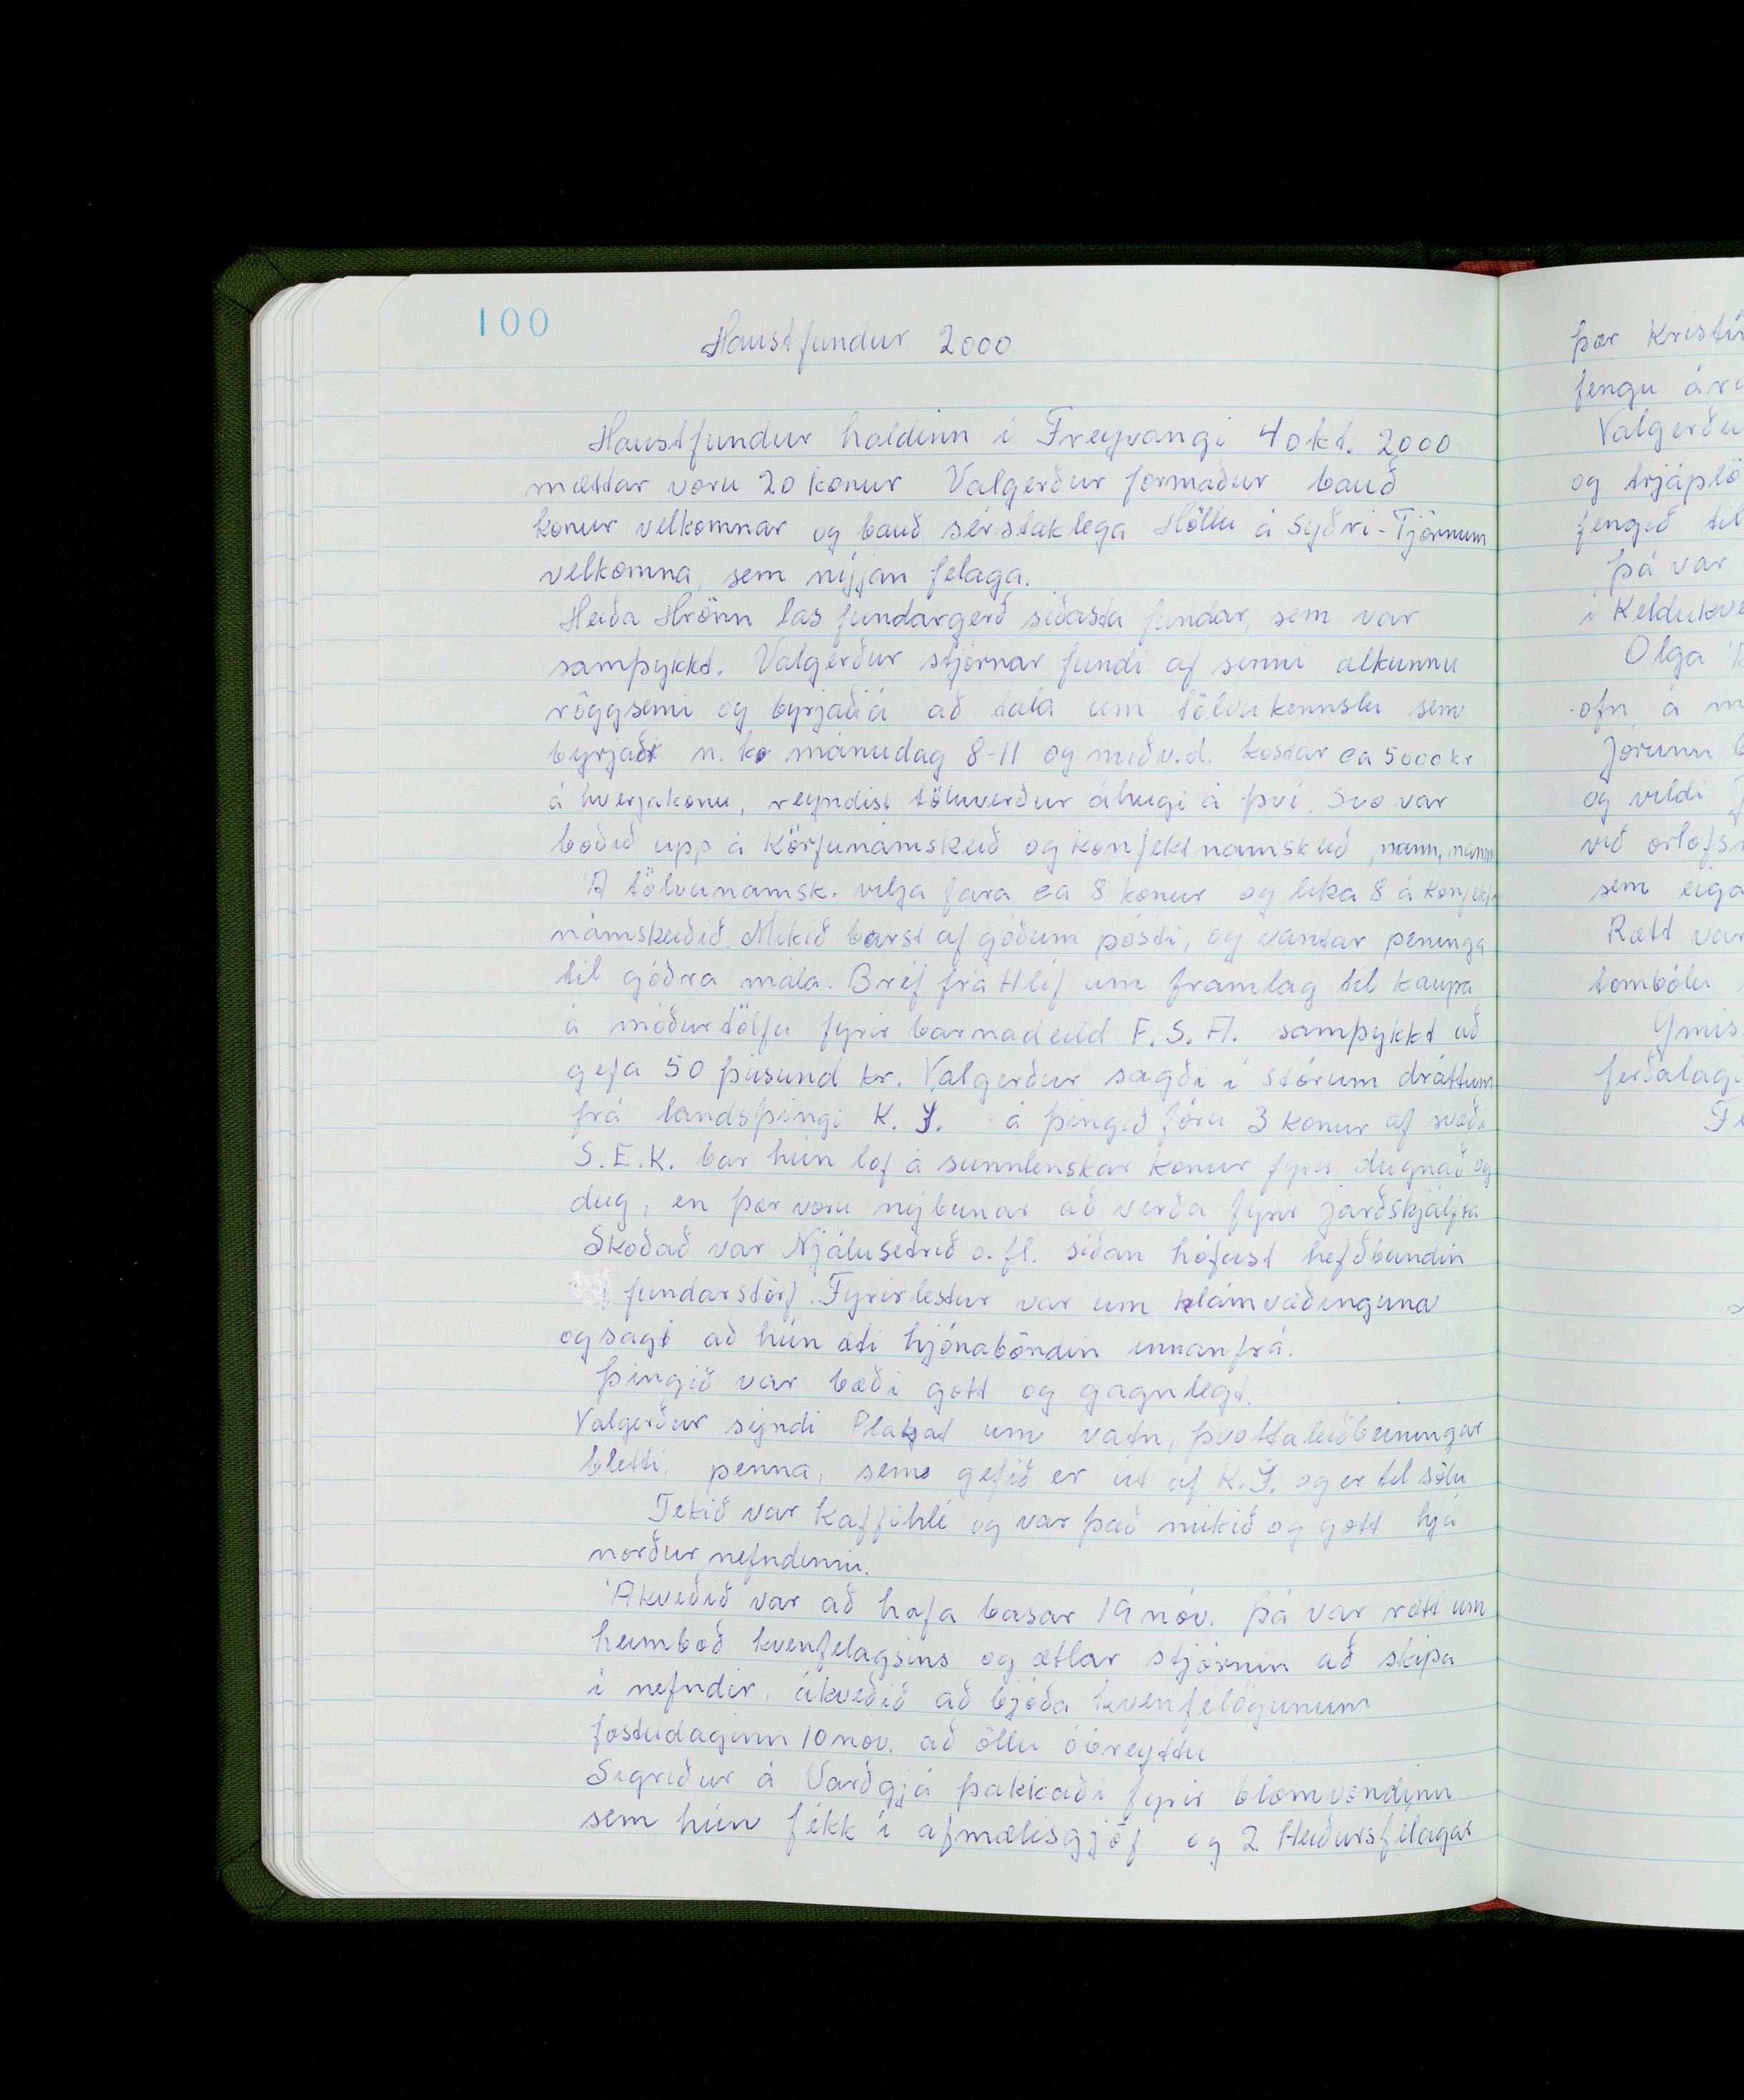 100
Haustfundur 2000
Haustfundur haldinn í Freyvangi 4 okt. 2000
mættar voru 20 konur Valgerður formaður bauð
konur velkomnar og bauð sérstaklega Höllu á Syðri-Tjörnum
velkomna, sem nýjan felaga.
Heiða Hrönn las fundargerð síðasta fundar, sem var
samþykkt. Valgerður stjórnar fundi af sinni alkunnu
röggsemi og byrjaði á að tala um tölvukennslu sem
byrjaði n.k. mánudag 8-11 og miðv.d. kostar ca 5000 kr
á hverjakonu, reyndist töluverður áhugi á því. Svo var
boðið upp á körfunámskeið og konfektnamskeið, namm, namm
Á tölvunamsk. vilja fara ca 8 konur og líka 8 á konfekt-
námskeiðið. Mikið barst af góðum pósti, og vantar peninga
til góðra mála. Bréf frá Hlíf um framlag til kaupa
á móðurtölfu fyrir barnadeild F.S.A. samþykkt að
gefa 50 þúsund kr. Valgerður sagði í stórum dráttum
frá landsþingi K.Í. á þingið fóru 3 konur af svæði
S.E.K. bar hún lof á sunnlenskar konur fyrir dugnað og
dug, en þær voru nýbúnar að verða fyrir jarðskjálfta
Skoðað var Njálusetrið o.fl. síðan hófust hefðbundin
fundarstörf. Fyrirlestur var um klámvæðinguna
og sagt að hún æti hjónaböndin innanfrá.
Þingið var bæði gott og gagnlegt.
Valgerður sýndi Plakat um vatn, þvottaleiðbeiningar
bletti, penna, sem gefið er út af K.Í. og er til sölu
Tekið var kaffihlé og var það mikið og gott hjá
norður nefndinni.
Ákveðið var að hafa basar 19 nóv. þá var rætt um
heimboð kvenfelagsins og ætlar stjórnin að skipa
í nefndir, ákveðið að bjóða kvenfélögunum
föstudaginn 10 nov. að öllu óbreyttu
Sigríður á Varðgjá þakkaði fyrir blómvöndinn
sem hún fékk í afmælisgjöf og 2 Heiðursfélagar
þær
fengu
Valgerður
og
fengið til
þá var
í
Olga
ofn, á
Jórunn
og vildi
við
sem eiga
Rætt var
tombólu